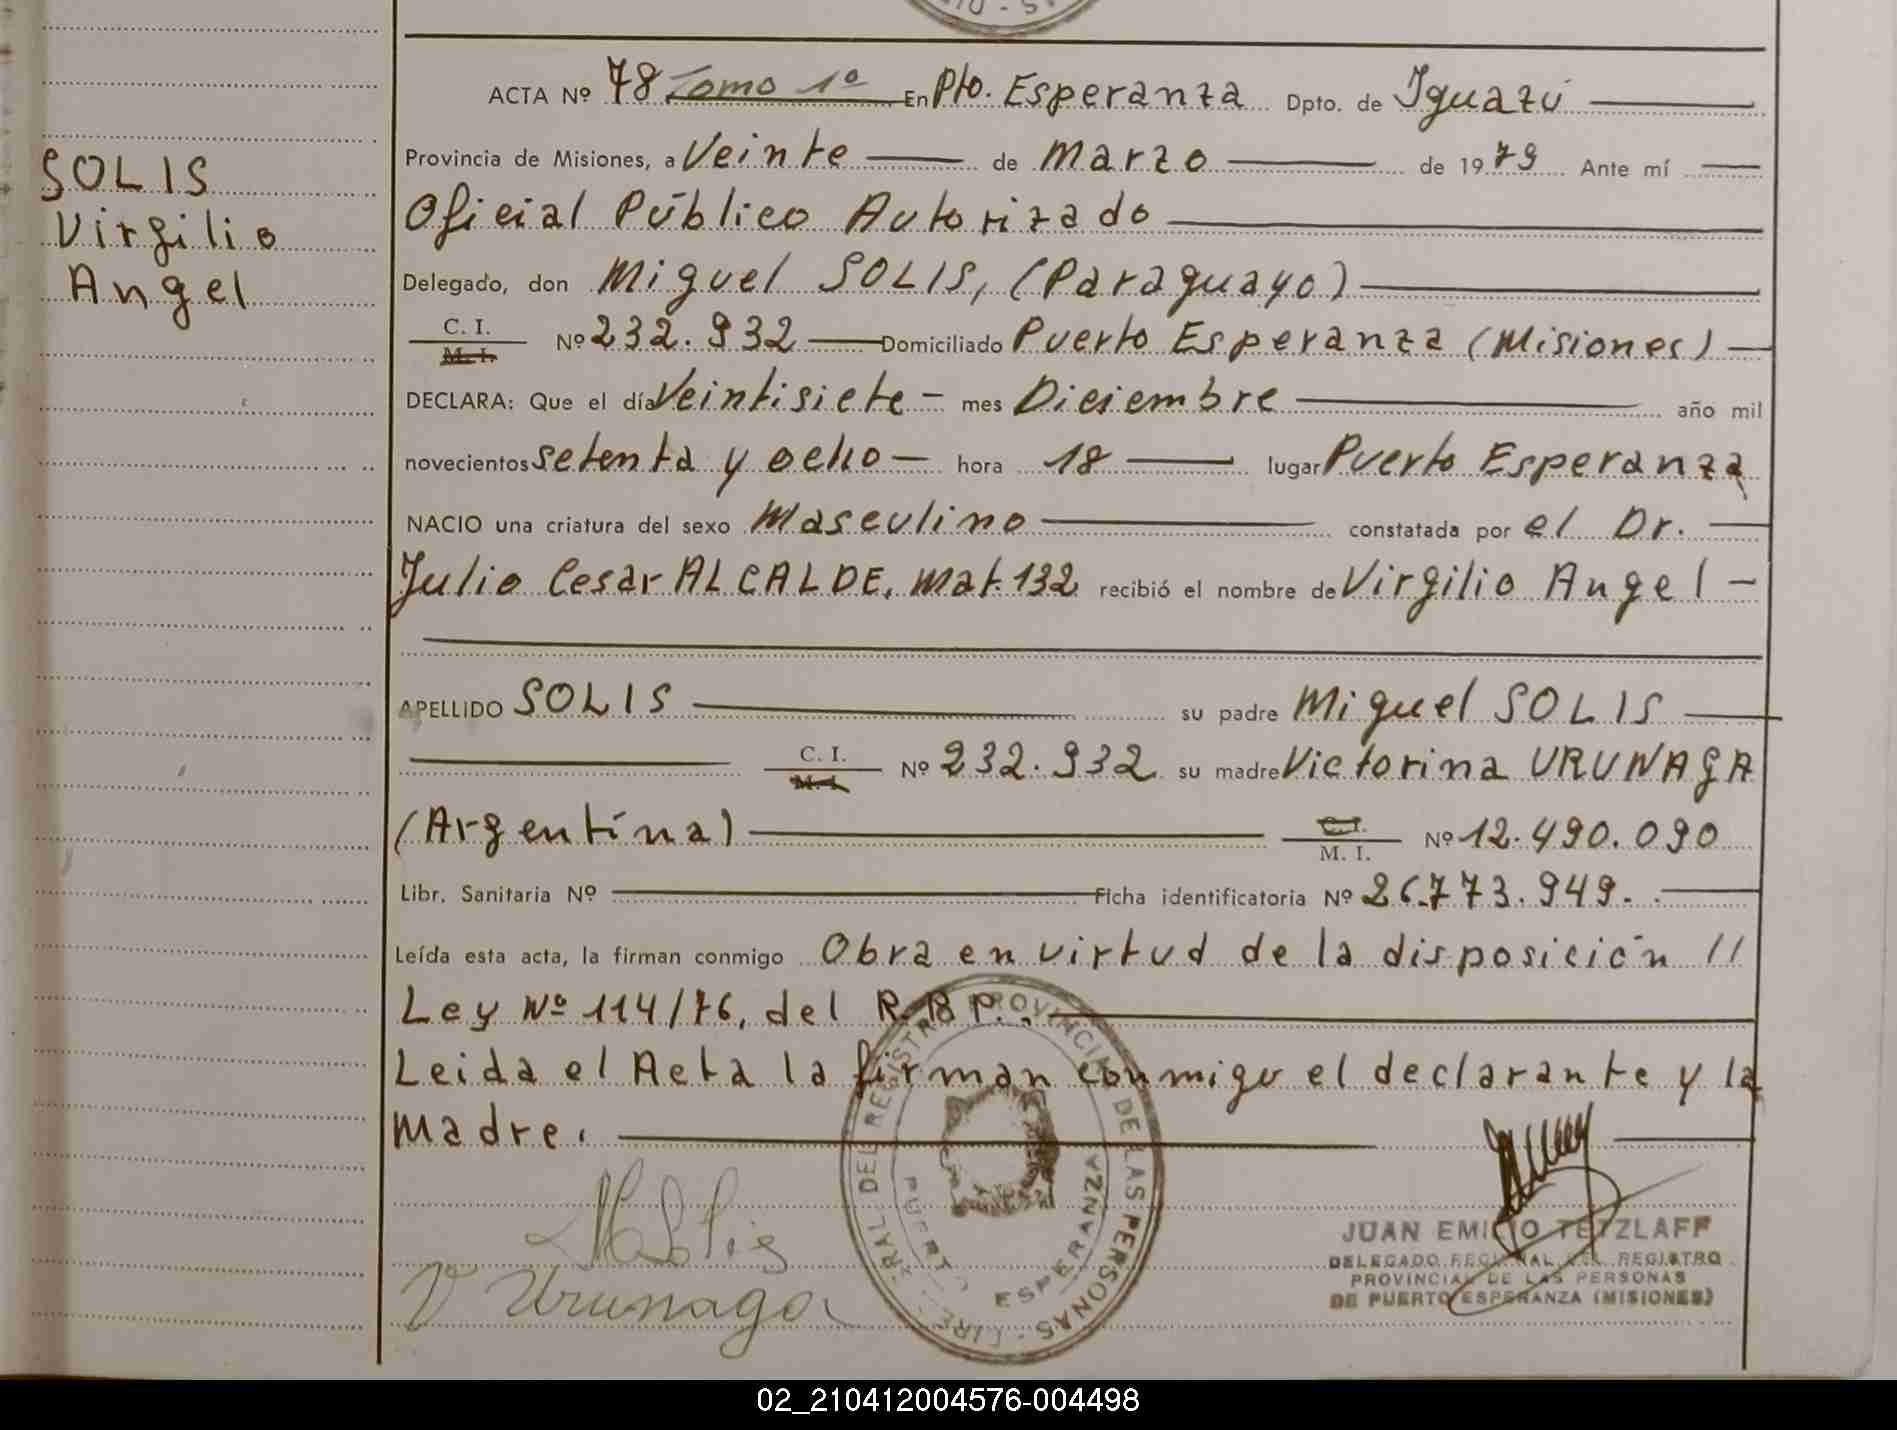 SOLIS
Virgilio
Angel
ACTA Nº 78 Tomo 1º En Pto. Esperanza Dpto. de Iguazú
Provincia de Misiones, a Veinte de Marzo de 1979 Ante mí
Oficial Público Autorizado
Delegado, don Miguel SOLIS, (Paraguayo)
C. I.
M. I.
Nº 232.932 Domiciliado Puerto Esperanza (Misiones)
DECLARA: Que el día Veintisiete - mes Diciembre año mil
novecientos setenta y ocho - hora 18 lugar Puerto Esperanza
NACIO una criatura del sexo Masculino constatada por el Dr.
Julio Cesar ALCALDE, Mat. 132 recibió el nombre de Virgilio Angel -
APELLIDO SOLIS su padre Miguel SOLIS
C. I.
M. I.
Nº 232.932 su madre Victorina URUNAGA
(Argentína)
C. I.
M. I.
Nº 12.490.090
Libr. Sanitaria Nº Ficha identificatoria Nº 26.773.949.
Leída esta acta, la firman conmigo Obra en virtud de la disposición //
Ley Nº 114/76, del R. P.
Leida el Acta la firman conmigo el declarante y la
Madre.
M Solis
V Urunaga
REGISTRO PROVINCIAL DE LAS PERSONAS
PUERTO ESPERANZA
JUAN EMILIO TETZLAFF
DELEGADO REGIONAL DEL REGISTRO
PROVINCIAL DE LAS PERSONAS
DE PUERTO ESPERANZA (MISIONES)
02_210412004576-004498